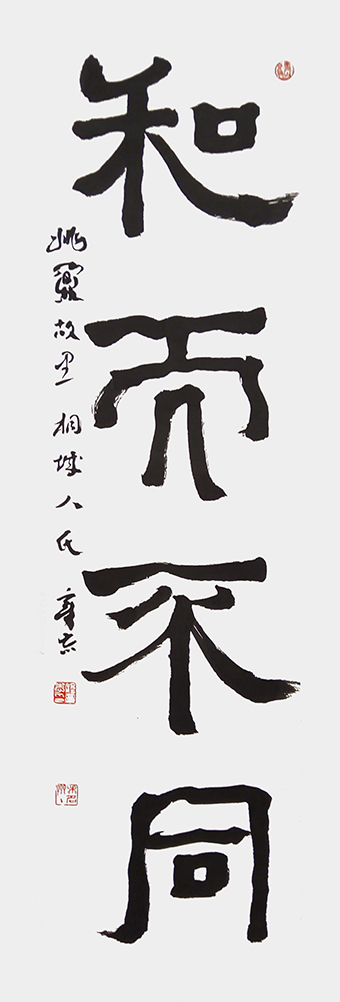 和而不同
姚鼐故里 桐城人氏